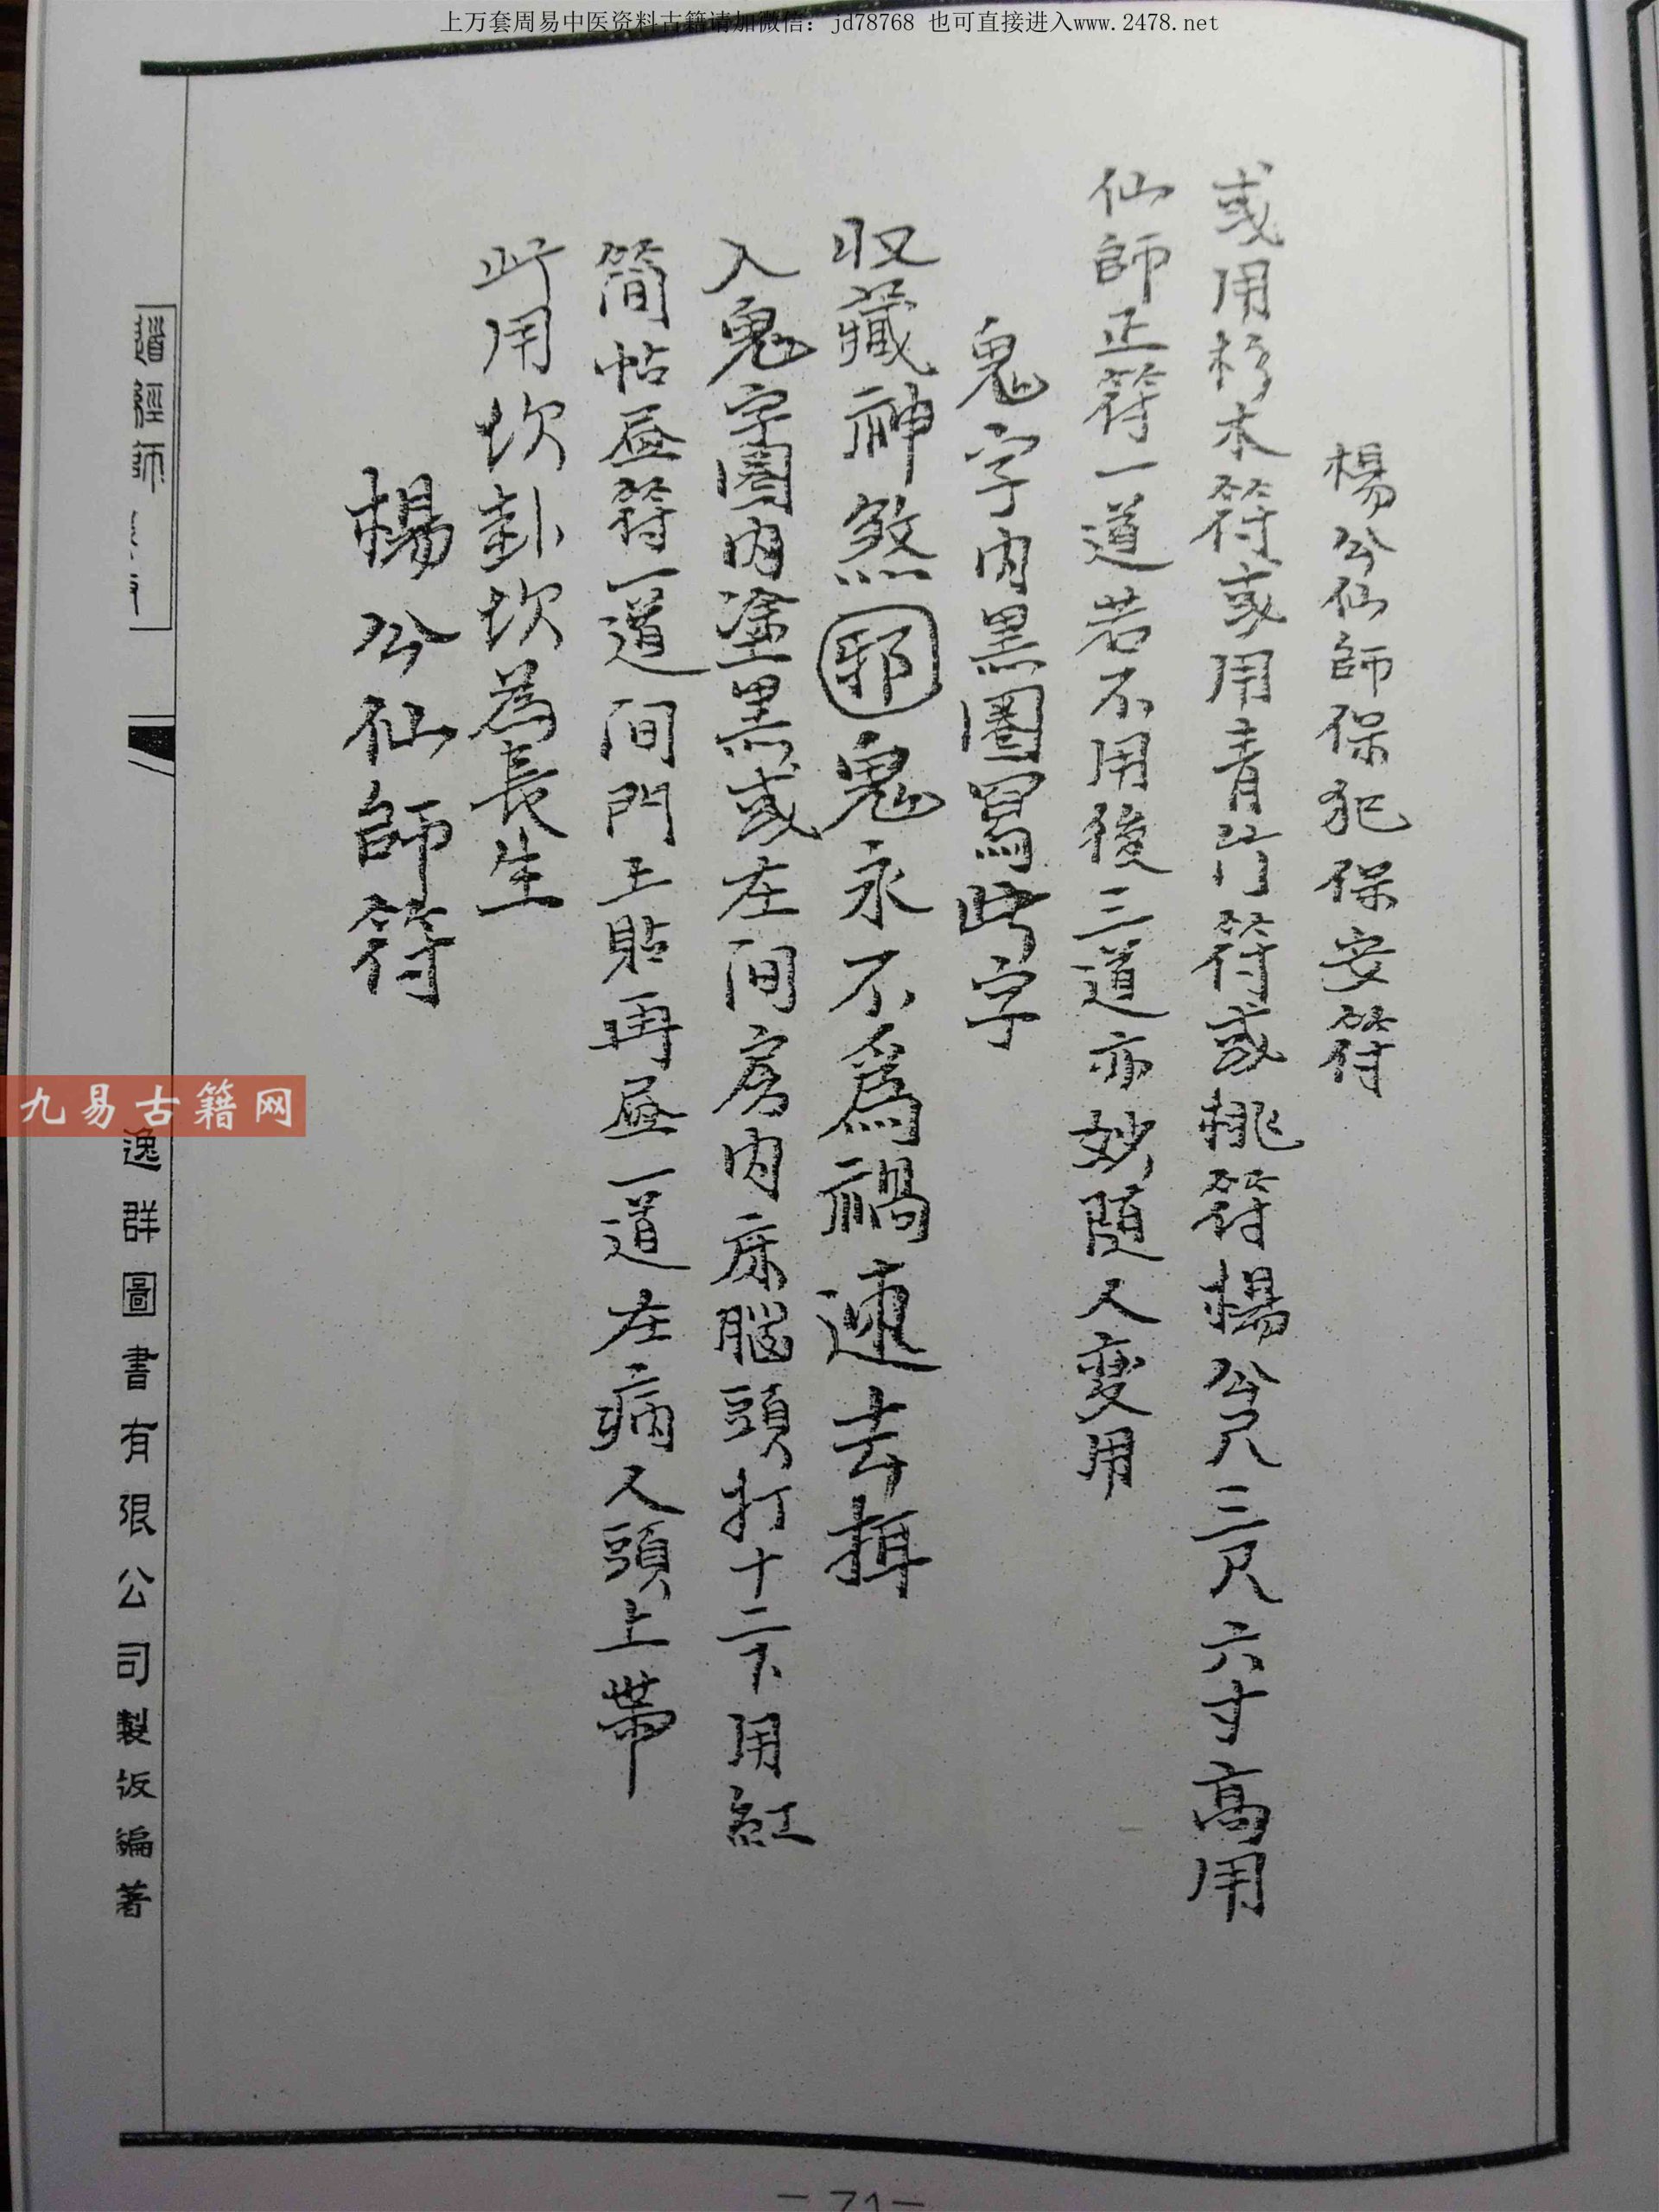 上万套周易中医资料古籍请加微信：jd78768 也可直接进入www.2478.net
楊公仙師保犯保安符
或用杉木符或用青竹符或桃符楊公尺三尺六寸高用
仙師正符一道若不用後三道亦妙隨人變用
鬼字内黑圈寫此字
収藏神煞邪鬼永不為禍速去揖
入鬼字圈内塗黑或在间房内床腦頭打十二下用紅
簡帖昼符一道间門上貼再昼一道在病人頭上帶
此用坎卦坎為長生
楊公仙師符
道經師
九易古籍网
逸群圖書有限公司製版編著
-71-